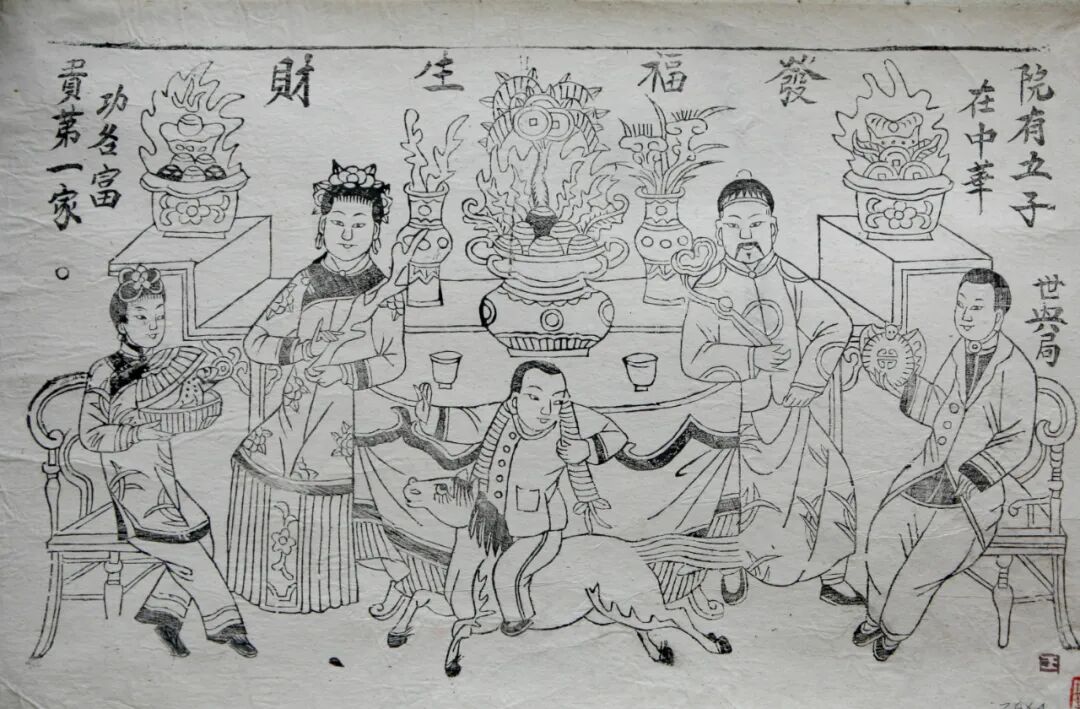 院有五子
在中華
世興局
發福生財
功各富
貴第一家